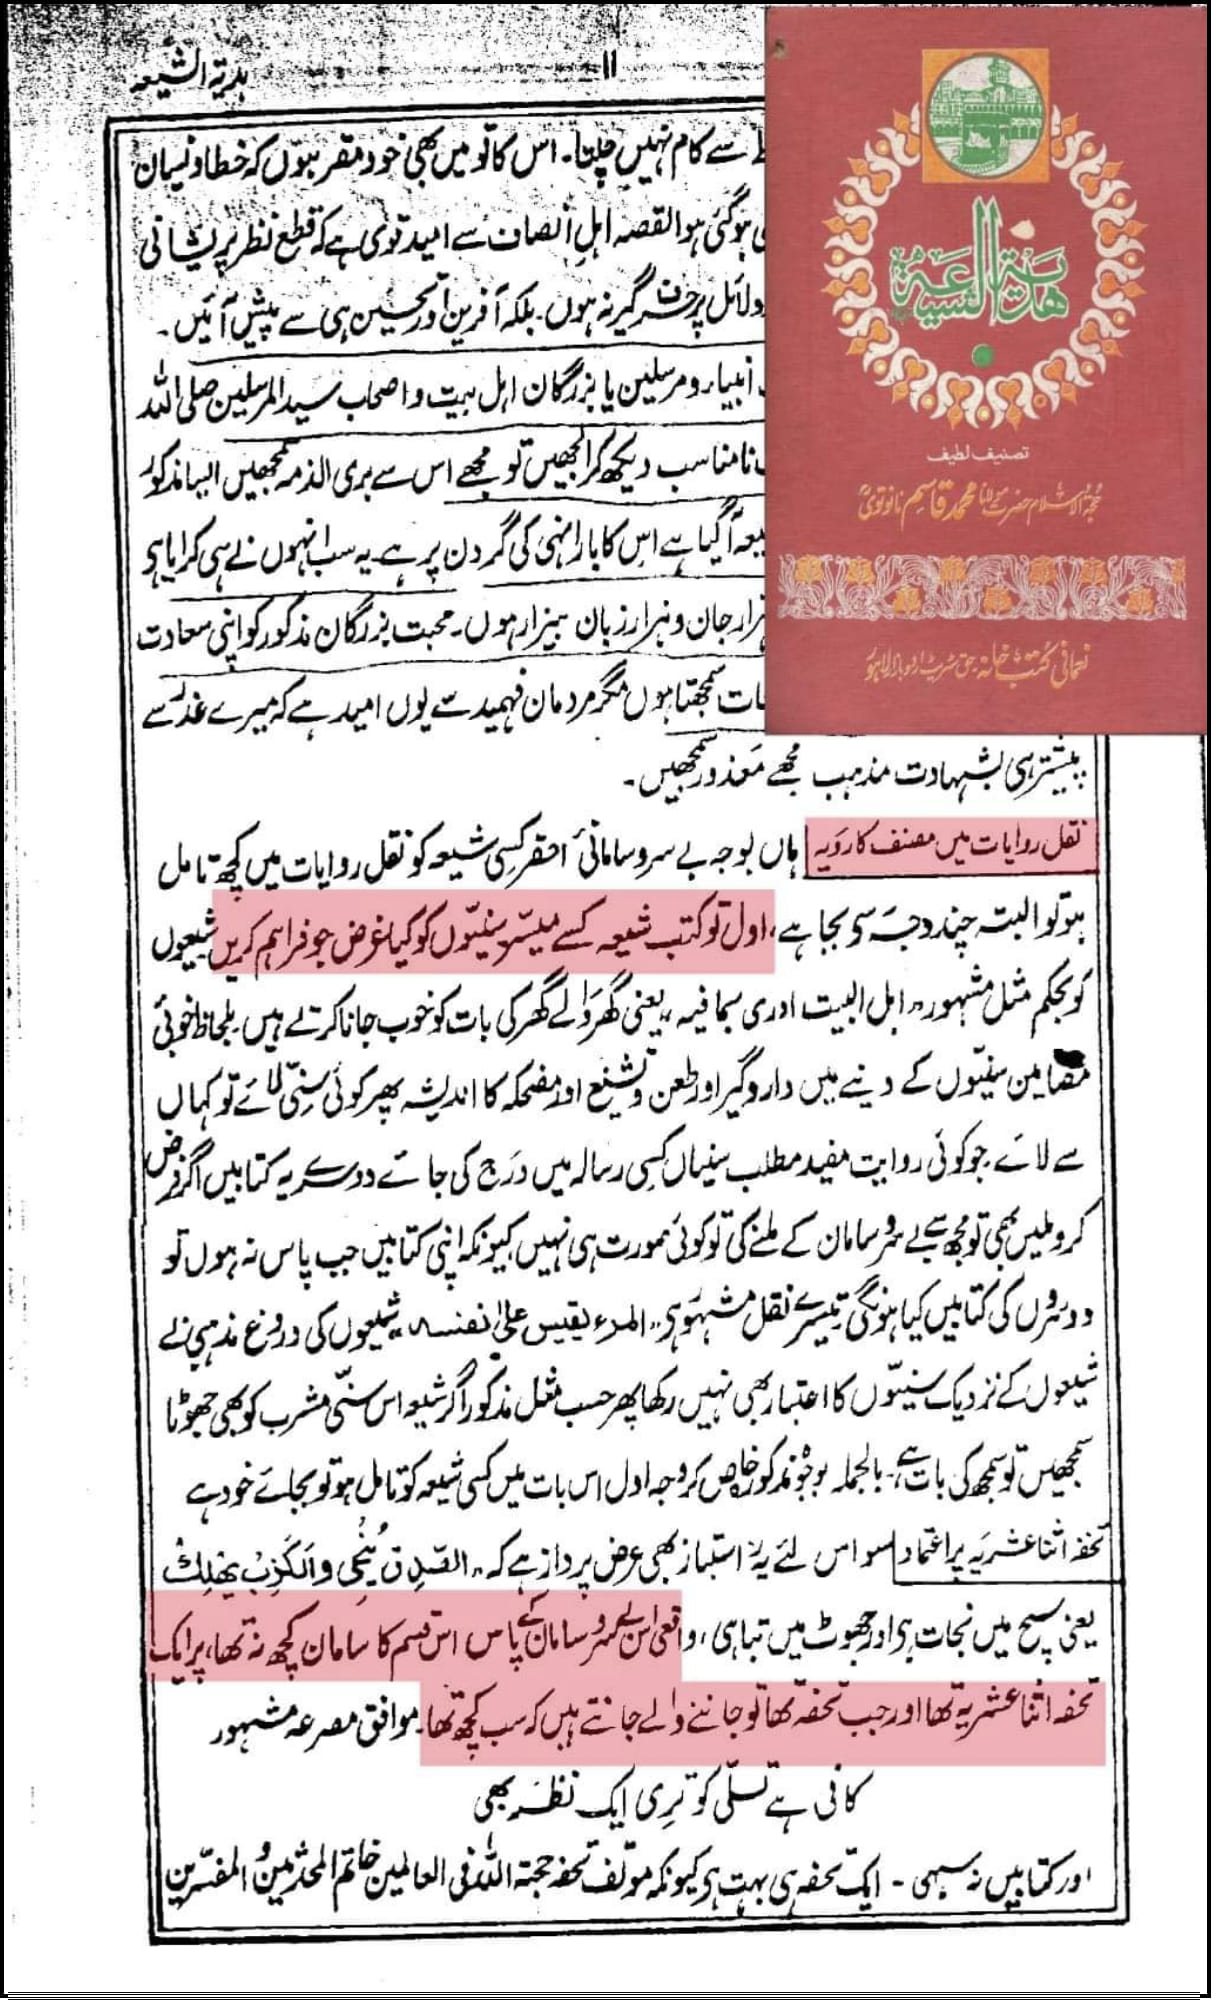 ہدیۃ الشیعہ
۱۱
سے کام نہیں چلتا۔ اس کا تو میں بھی خود مقر ہوں کہ خطا و نسیان
ہوگئی ہو القصہ اہل انصاف سے امید قوی ہے کہ قطع نظر پریشانی
دلائل پر حرف گیر نہ ہوں۔ بلکہ آفرین اور تحسین ہی سے پیش آئیں۔
انبیاء و مرسلین یا بزرگان اہل بیت و اصحاب سید المرسلین صلی اللہ
نامناسب دیکھ کر الجھیں تو مجھے اس سے بری الذمہ سمجھیں ایسا مذکور
آگیا ہے اس کا بار انہی کی گردن پر ہے۔ یہ سب انہوں نے ہی کرایا ہو
جان و ہزار زبان بیزار ہوں۔ محبت بزرگان مذکور کو اپنی سعادت
سمجھتا ہوں مگر مردمان فہمید سے یوں امید ہے کہ میرے عذر سے
پیشتر ہی بشہادت مذہب مجھے معذور سمجھیں۔
نقل روایات میں مصنف کا رویہ ہاں بوجہ بے سروسامانی احقر کسی شیعہ کو نقل روایات میں کچھ تامل
ہو تو البتہ چند وجہ سی بجا ہے، اول تو کتب شیعہ کسے میسر سنیّوں کو کیا غرض جو فراہم کریں شیعوں
کو بحکم مثل مشہور "اہل البیت ادری بما فیہ" یعنی گھر والے گھر کی بات کو خوب جانا کرتے ہیں۔ بلحاظ خوبی
مضامین سنیّوں کے دینے میں دار و گیر اور طعن و تشنیع اور مضحکہ کا اندیشہ پھر کوئی سنّی لائے تو کہاں
سے لائے۔ جو کوئی روایت مفید مطلب سنیاں کسی رسالہ میں درج کی جائے دوسرے یہ کتابیں اگر فرض
کرو ملیں بھی تو مجھ سے بے سروسامان کے ملنے کی تو کوئی صورت ہی نہیں کیونکہ اپنی کتابیں جب پاس نہ ہوں تو
دوسروں کی کتابیں کیا ہونگی تیسرے نقل مشہور ہی "المرء یقیس علیٰ نفسہ" شیعوں کی دروغ مذہبی نے
شیعوں کے نزدیک سنیّوں کا اعتبار بھی نہیں رکھا پھر حسب مثل مذکور اگر شیعہ اس سنّی مشرب کو بھی جھوٹا
سمجھیں تو سمجھ کی بات ہے، بالجملہ بوجوہ مذکور خاص کر وجہ اول اس بات میں کسی شیعہ کو تامل ہو تو بجائے خود ہے
تحفہ اثنا عشریہ پر اعتماد سو اس لئے یہ راستباز بھی عرض پرداز ہے کہ "الصّدق یُنجی والکذب یھلک
یعنی سچ میں نجات ہی اور جھوٹ میں تباہی، واقعی اس بے سروسامان کے پاس اس قسم کا سامان کچھ نہ تھا، پر ایک
تحفہ اثنا عشریہ تھا اور جب تحفہ تھا تو جاننے والے جانتے ہیں کہ سب کچھ تھا۔ موافق مصرعہ مشہور
کافی ہے تسلّی کو تری ایک نظر بھی
اور کتابیں نہ سہی - ایک تحفہ ہی بہت ہو کیونکہ مؤلف تحفہ حجۃ اللہ فی العالمین خاتم المحدثین و المفسّرین
ھدیۃ الشیعۃ
تصنیف لطیف
حجۃ الاسلام حضرت مولانا محمد قاسم نانوتوی
نعمانی کتب خانہ حق سٹریٹ اردو بازار لاہور